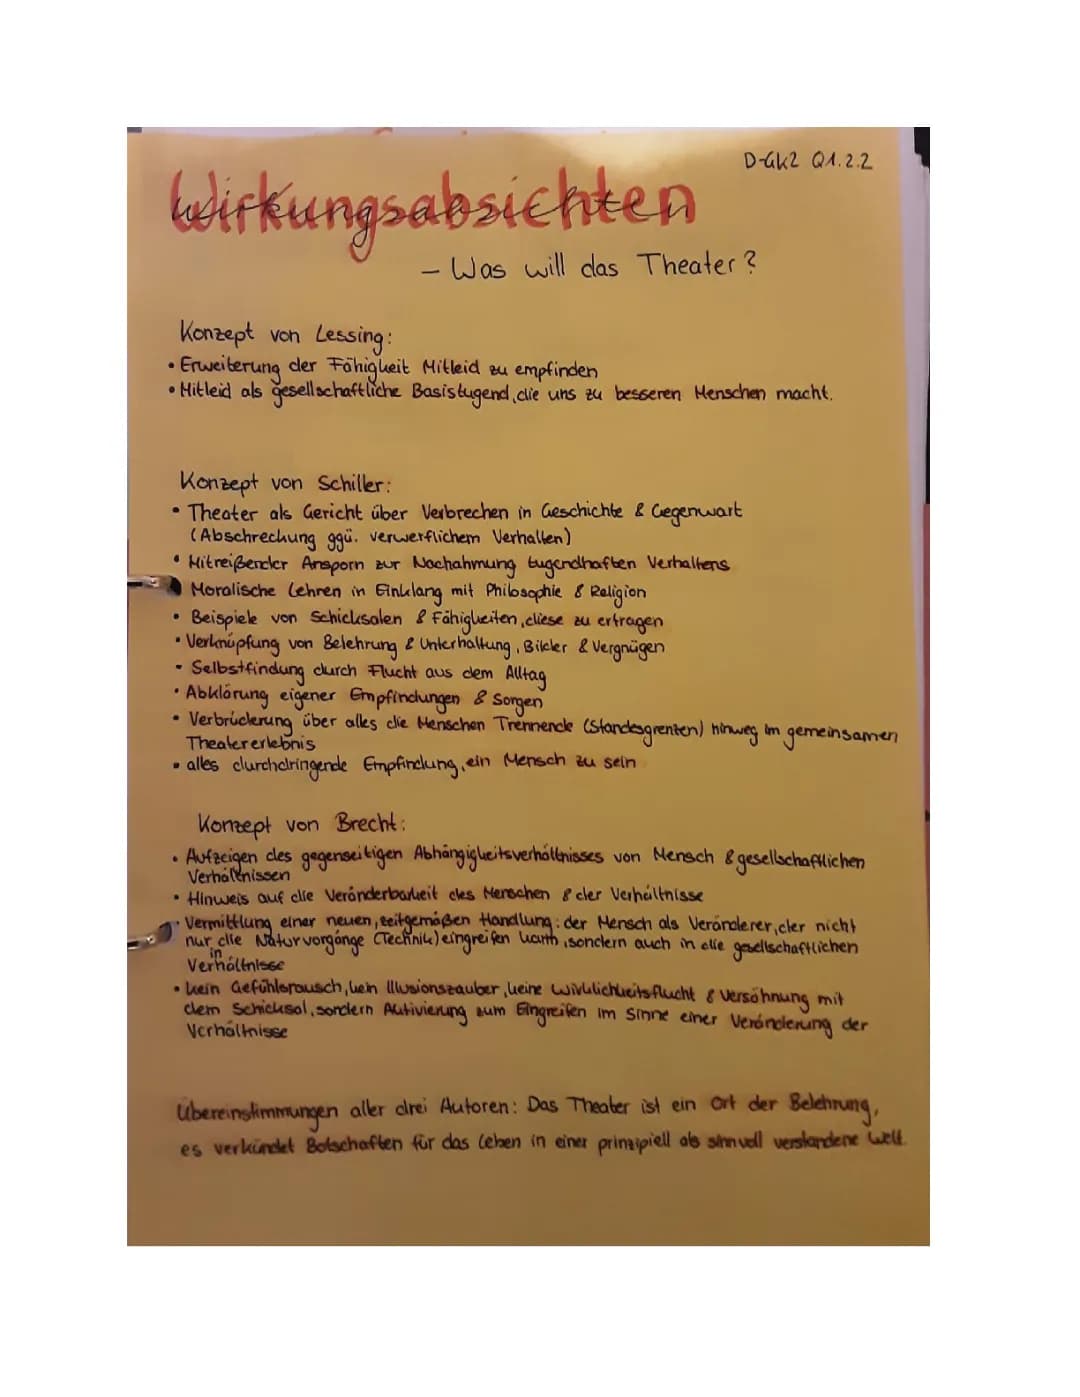 D-GK2 Q1.2.2
Wirkungsabsichten
- Was will das Theater?
Konzept von Lessing:
• Erweiterung der Fähigkeit Mitleid zu empfinden
• Mitleid als gesellschaftliche Basistugend, die uns zu besseren Menschen macht.
Konzept von Schiller:
• Theater als Gericht über Verbrechen in Geschichte & Gegenwart
(Abschreckung ggü. verwerflichem Verhalten)
• Mitreißender Ansporn zur Nachahmung tugendhaften Verhaltens
Moralische Lehren in Einklang mit Philosophie & Religion
• Beispiele von Schicksalen & Fähigkeiten, diese zu ertragen
• Verknüpfung von Belehrung & Unterhaltung, Bilder & Vergnügen
• Selbstfindung durch Flucht aus dem Alltag
• Abklärung eigener Empfindungen & Sorgen
• Verbrüderung über alles die Menschen Trennende (Standesgrenzen) hinweg im gemeinsamen
Theatererlebnis
• alles durchdringende Empfindung, ein Mensch zu sein
Konzept von Brecht:
• Aufzeigen des gegenseitigen Abhängigkeitsverhältnisses von Mensch & gesellschaftlichen
Verhältnissen
• Hinweis auf die Veränderbarkeit des Menschen & der Verhältnisse
• Vermittlung einer neuen, zeitgemäßen Handlung: der Mensch als Veränderer, der nicht
nur in die Naturvorgänge (Technik) eingreifen kann, sondern auch in die gesellschaftlichen
Verhältnisse
• kein Gefühlsrausch, kein Illusionszauber, keine Wirklichkeitsflucht & Versöhnung mit
dem Schicksal, sondern Aktivierung zum Eingreifen im Sinne einer Veränderung der
Verhältnisse
Übereinstimmungen aller drei Autoren: Das Theater ist ein Ort der Belehrung,
es verkündet Botschaften für das Leben in einer prinzipiell als sinnvoll verstandene Welt.